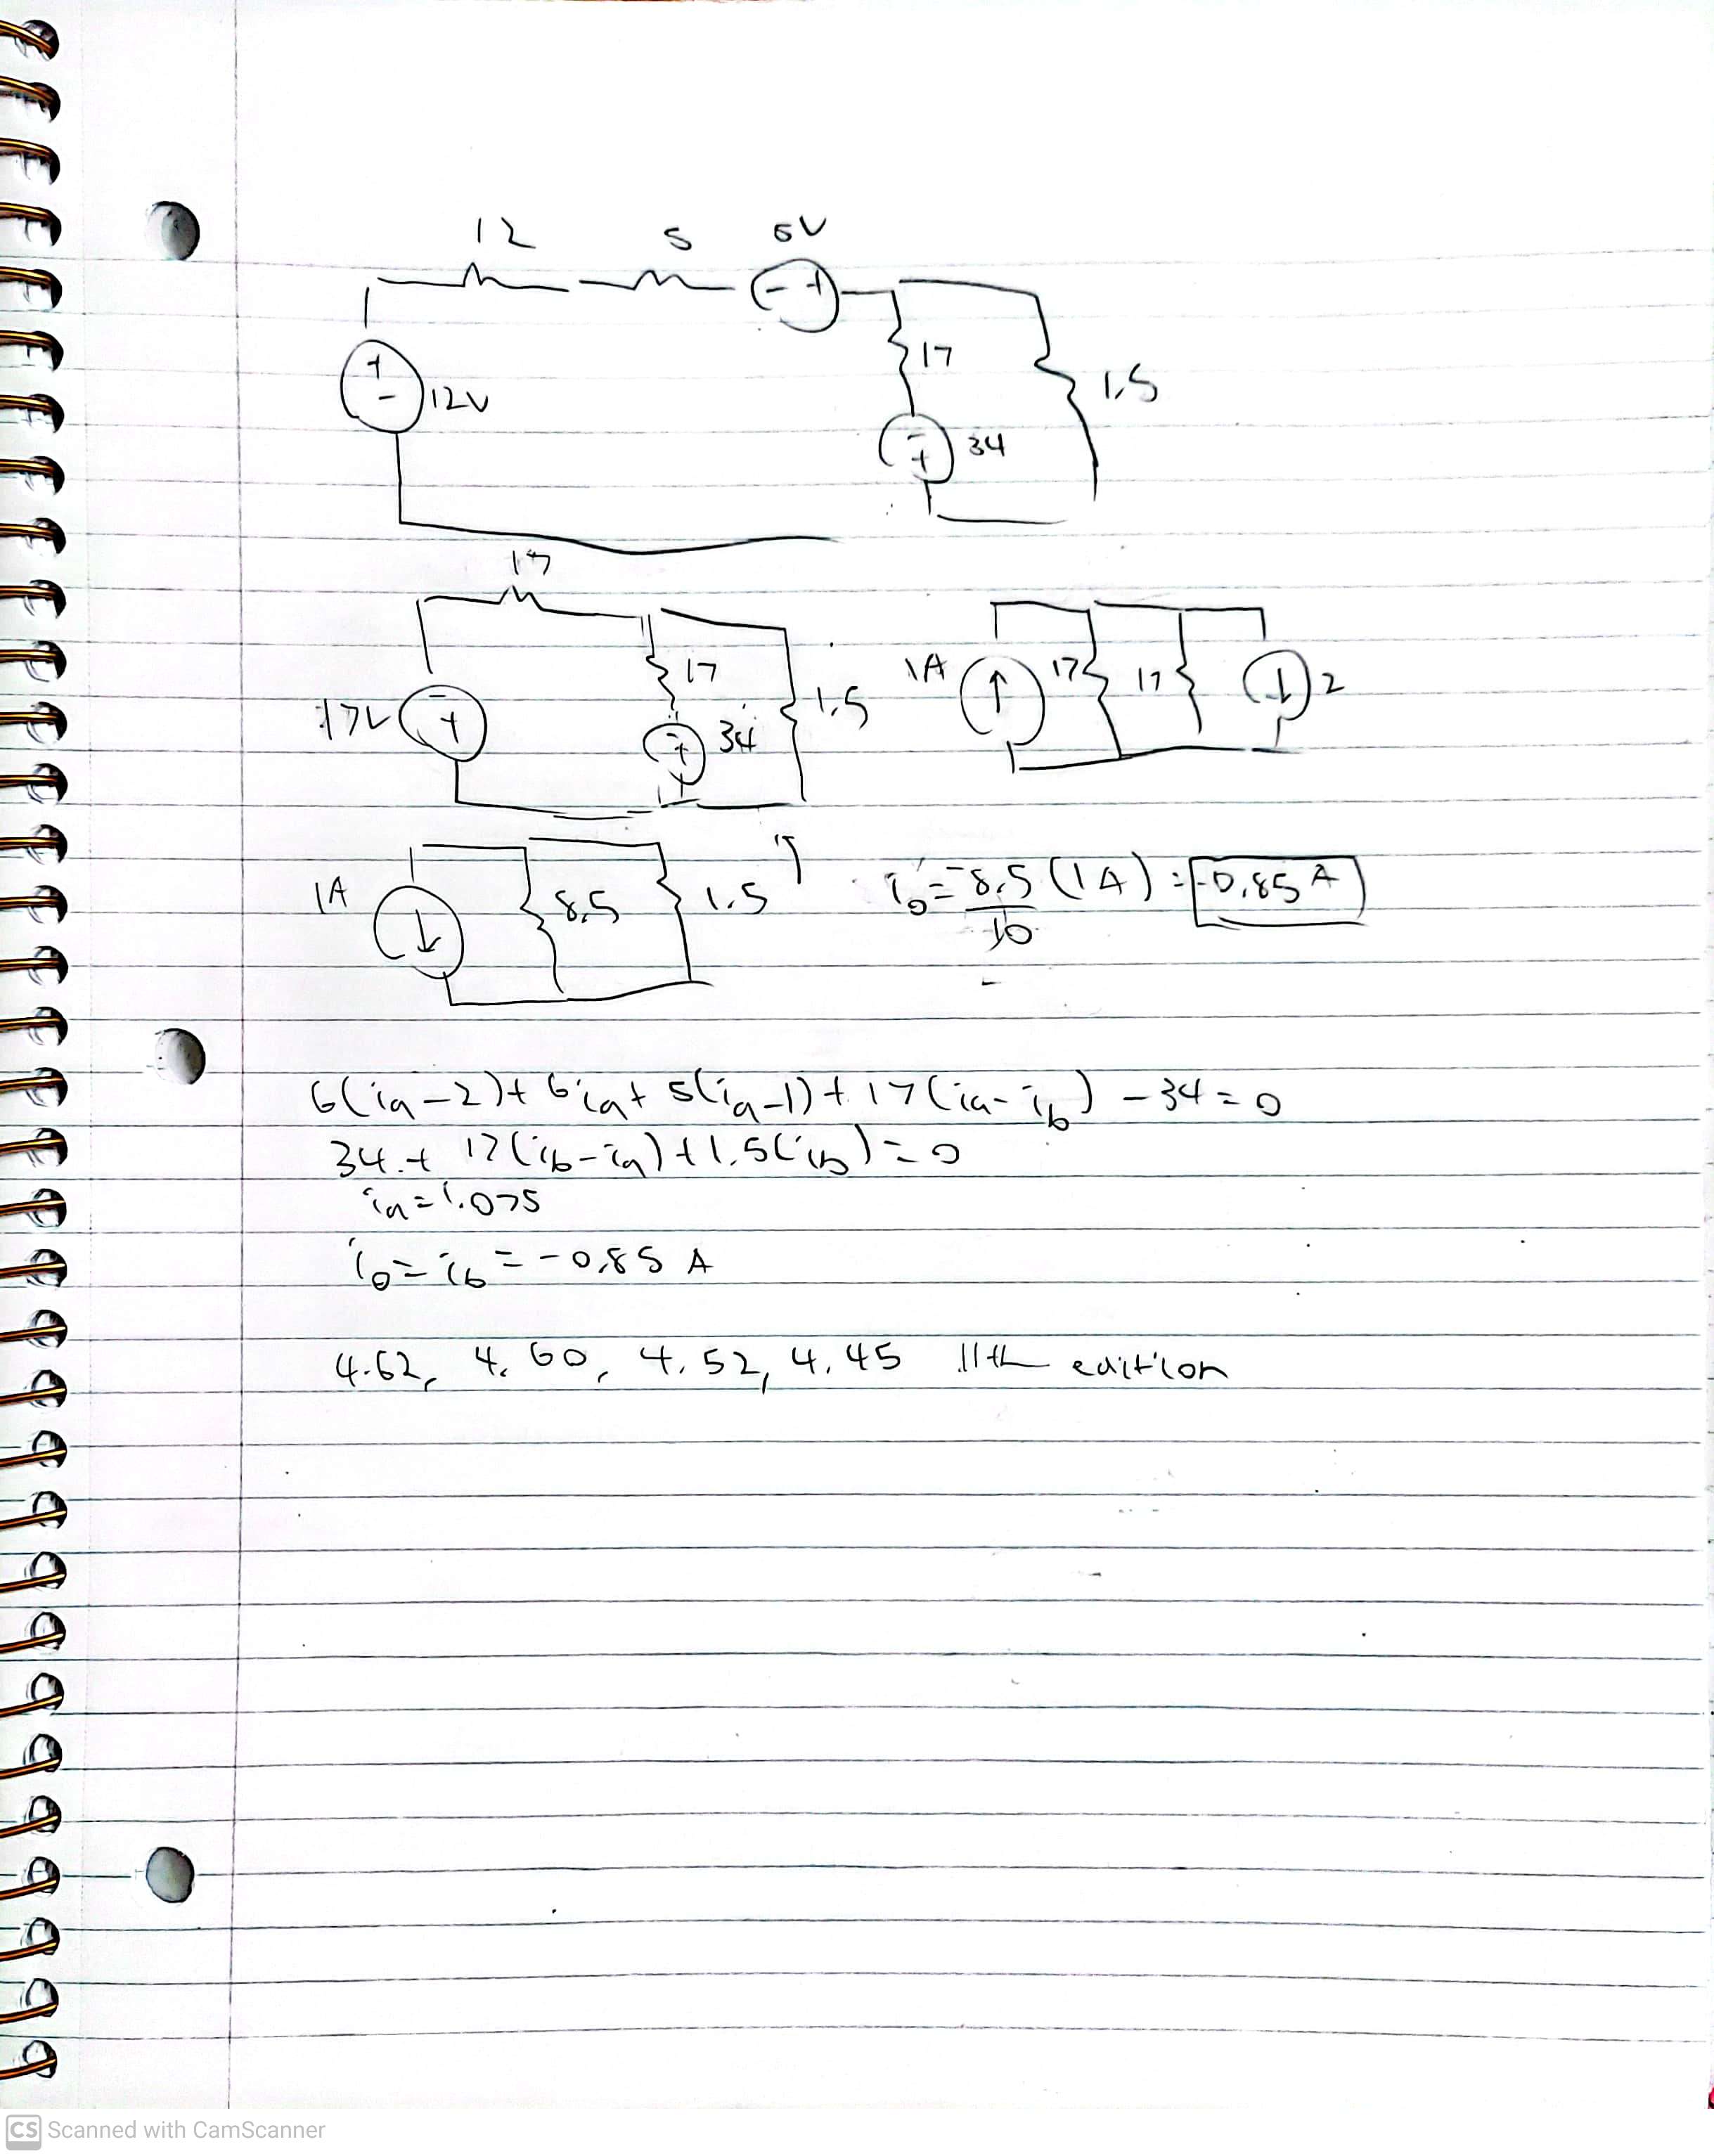 12 5 5V
17
12V 1.5
34
17
17 1A 17 17 2
17V 34 1.5
1A 8.5 1.5 i₀ = -8.5/10 (1A) = -0.85 A
6(ia-2)+6ia+5(ia-1)+17(ia-ib) -34=0
34+17(ib-ia)+1.5(ib)=0
ia=1.075
i₀=ib=-0.85 A
4.62, 4.60, 4.52, 4.45 11th edition
CS Scanned with CamScanner